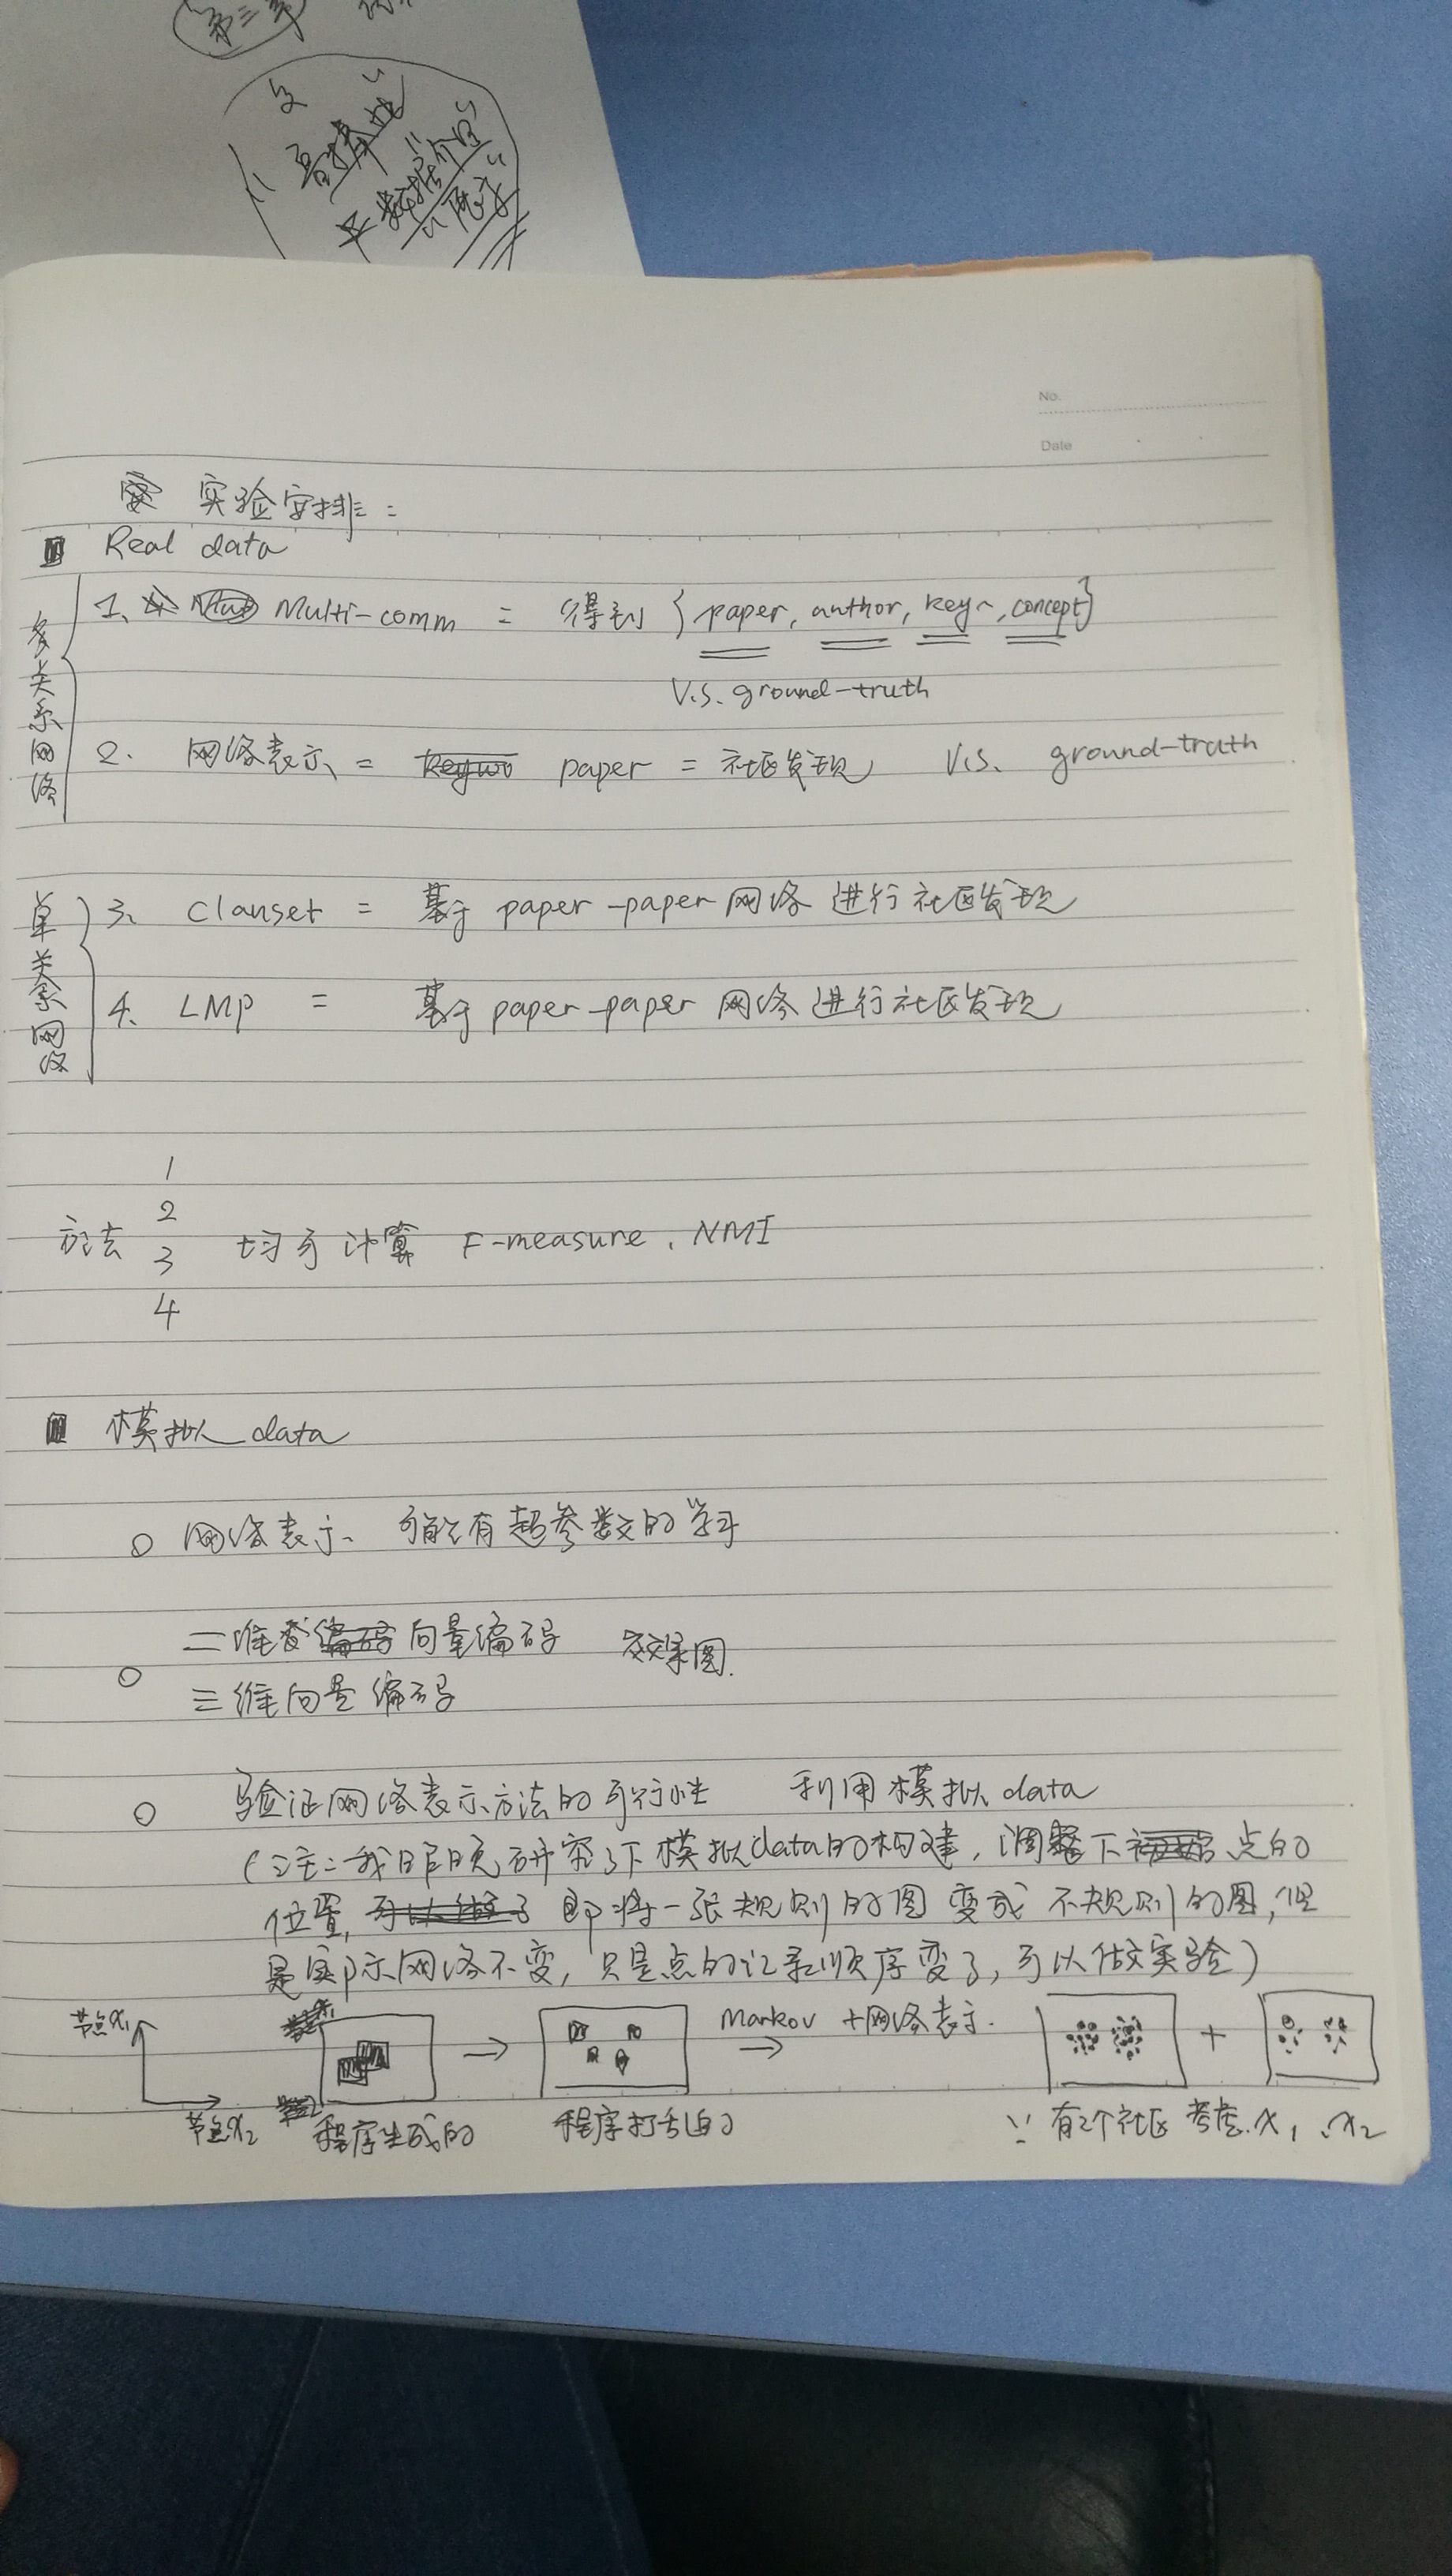 第三章
"高频
数据介绍"
"展示"
No.
Date
实验安排:
Real data
多关系网络
1、 Multi-comm = 得到 {paper, author, key~, concept}
V.S. ground-truth
2. 网络表示 = paper = 社区发现 V.S. ground-truth
单关系网络
3、 Clauset = 基于 paper-paper 网络 进行 社区发现
4、 LMP = 基于 paper-paper 网络 进行社区发现
1
2
方法 3 均可计算 F-measure、NMI
4
模拟 data
○ 网络表示、 有超参数的学习
二维 向量编码 效果图.
○
三维向量编码
○ 验证网络表示方法的可行性 利用模拟 data
(注:我昨晚研究了下模拟data的构建,调整下 点的
位置, 即将一张规则的图 变成 不规则的图,但
是实际网络不变,只是点的记录顺序变了,可以做实验)
节点x₁
节点x₂
程序生成的
→
程序打乱的
Markov +网络表示.
→
+
∵ 有2个社区 考虑 x₁、x₂